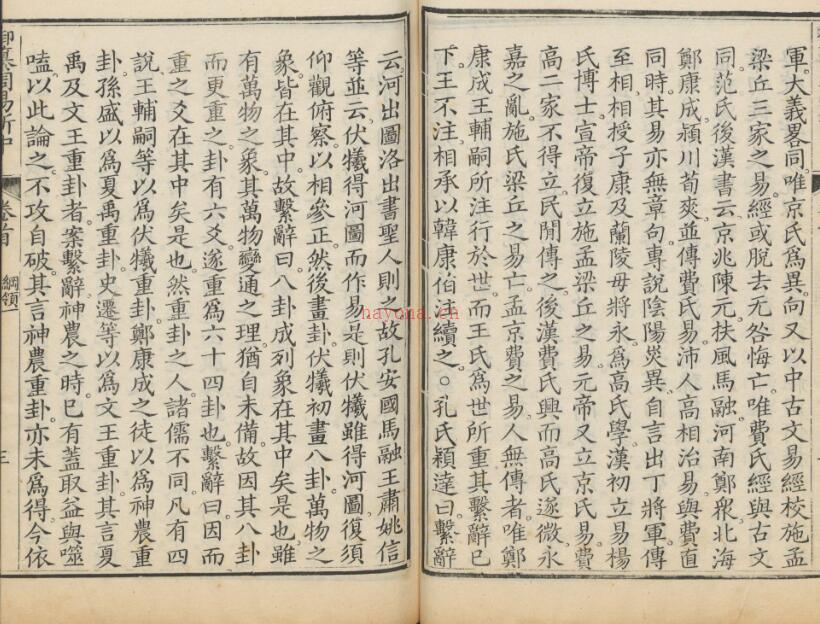 軍大義畧同唯京氏爲異向又以中古文易經校施孟
梁丘三家之易經或脫去无咎悔亡唯費氏經與古文
同范氏後漢書云京兆陳元扶風馬融河南鄭衆北海
鄭康成潁川荀爽並傳費氏易沛人高相治易與費直
同時其易亦無章句專說陰陽災異自言出丁將軍傳
至相相授子康及蘭陵毋將永爲高氏學漢初立易楊
氏博士宣帝復立施孟梁丘之易元帝又立京氏易費
高二家不得立民閒傳之後漢費氏興而高氏遂微永
嘉之亂施氏梁丘之易亡孟京費之易人無傳者唯鄭
康成王輔嗣所注行於世而王氏爲世所重其繫辭已
下王不注相承以韓康伯注續之○孔氏穎達曰繫辭
云河出圖洛出書聖人則之故孔安國馬融王肅姚信
等並云伏犧得河圖而作易是則伏犧雖得河圖復須
仰觀俯察以相參正然後畫卦伏犧初畫八卦萬物之
象皆在其中故繫辭曰八卦成列象在其中矣是也雖
有萬物之象其萬物變通之理猶自未備故因其八卦
而更重之卦有六爻遂重爲六十四卦也繫辭曰因而
重之爻在其中矣是也然重卦之人諸儒不同凡有四
說王輔嗣等以爲伏犧重卦鄭康成之徒以爲神農重
卦孫盛以爲夏禹重卦史遷等以爲文王重卦其言夏
禹及文王重卦者案繫辭神農之時已有蓋取益與噬
嗑以此論之不攻自破其言神農重卦亦未爲得今依
御纂周易折中 卷首 綱領一 三
hayona.cn